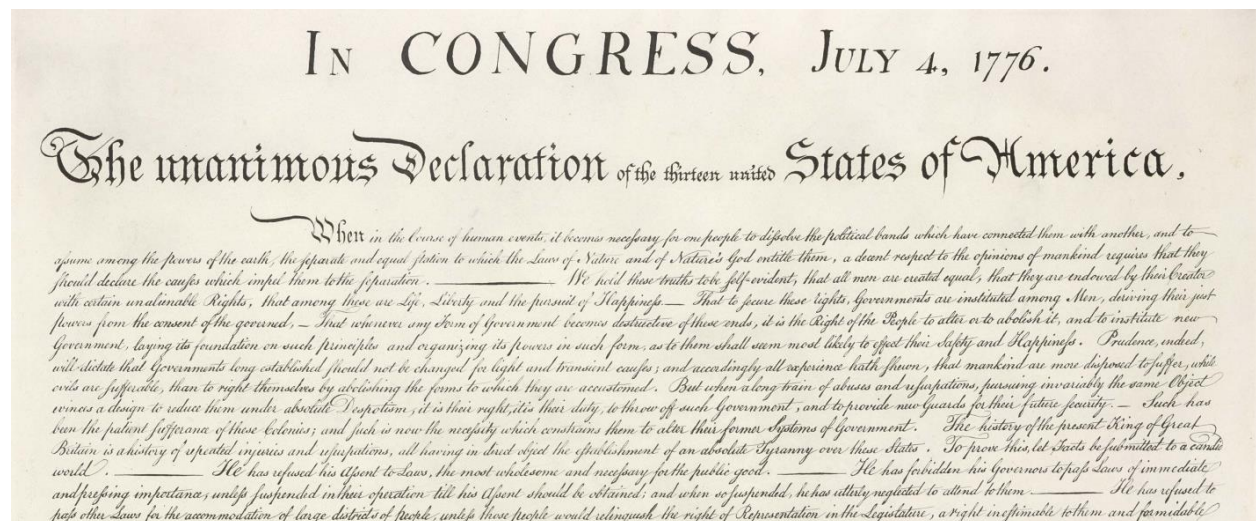 IN CONGRESS, JULY 4, 1776.
The unanimous Declaration of the thirteen united States of America,
When in the Course of human events, it becomes necessary for one people to dissolve the political bands which have connected them with another, and to
assume among the powers of the earth, the separate and equal station to which the Laws of Nature and of Nature's God entitle them, a decent respect to the opinions of mankind requires that they
should declare the causes which impel them to the separation. ———— We hold these truths to be self-evident, that all men are created equal, that they are endowed by their Creator
with certain unalienable Rights, that among these are Life, Liberty and the pursuit of Happiness — That to secure these rights, Governments are instituted among Men, deriving their just
powers from the consent of the governed, — That whenever any Form of Government becomes destructive of these ends, it is the Right of the People to alter or to abolish it, and to institute new
Government, laying its foundation on such principles and organizing its powers in such form, as to them shall seem most likely to effect their Safety and Happiness. Prudence, indeed,
will dictate that Governments long established should not be changed for light and transient causes; and accordingly all experience hath shewn, that mankind are more disposed to suffer, while
evils are sufferable, than to right themselves by abolishing the forms to which they are accustomed. But when a long train of abuses and usurpations, pursuing invariably the same Object
evinces a design to reduce them under absolute Despotism, it is their right, it is their duty, to throw off such Government, and to provide new Guards for their future security. — Such has
been the patient sufferance of these Colonies; and such is now the necessity which constrains them to alter their former Systems of Government. The history of the present King of Great
Britain is a history of repeated injuries and usurpations, all having in direct object the establishment of an absolute Tyranny over these States. To prove this, let Facts be submitted to a candid
world. ———— He has refused his Assent to Laws, the most wholesome and necessary for the public good. ———— He has forbidden his Governors to pass Laws of immediate
and pressing importance, unless suspended in their operation till his Assent should be obtained; and when so suspended, he has utterly neglected to attend to them. ———— He has refused to
pass other Laws for the accommodation of large districts of people, unless those people would relinquish the right of Representation in the Legislature, a right inestimable to them and formidable